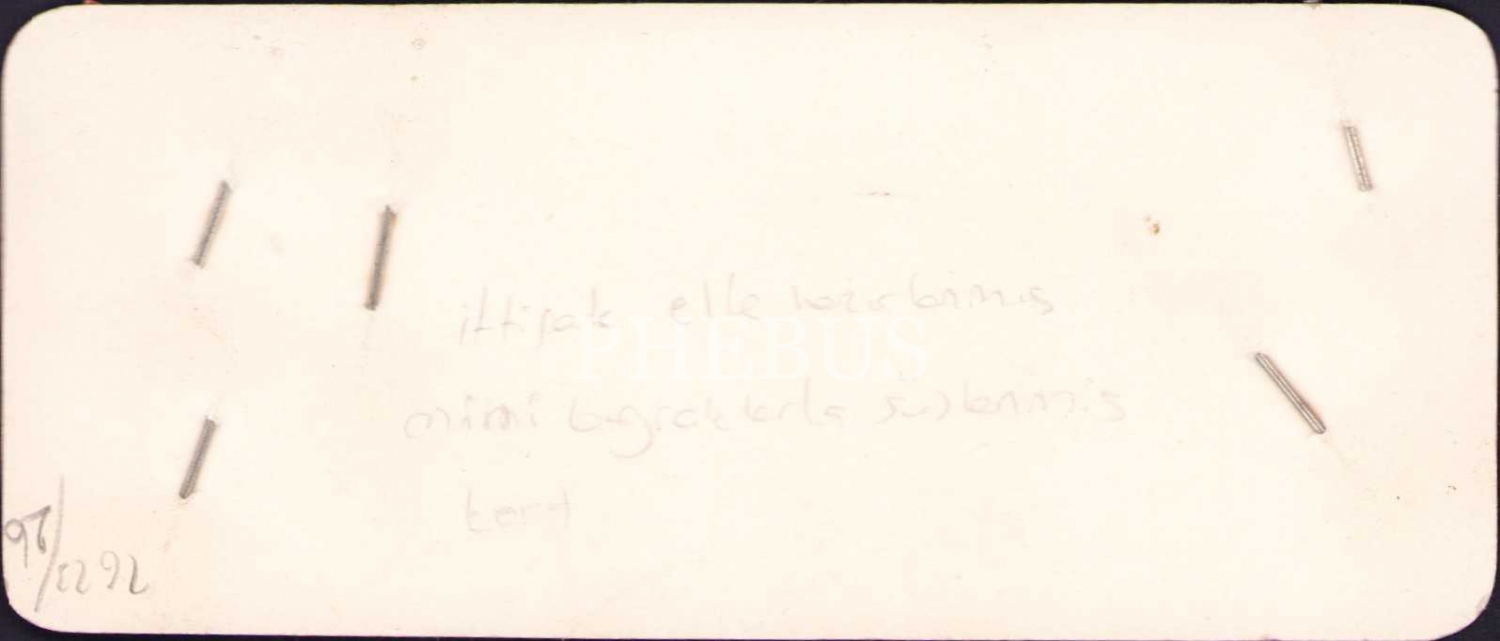 ittifak elle hazırlanmış
PHEBUS
mini bayraklarla süslenmiş
kart